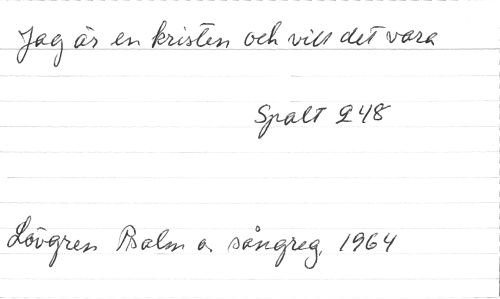 Jag är en kristen och vill det vara
Spalt 248
Lövgren Psalm o. sångreg. 1964